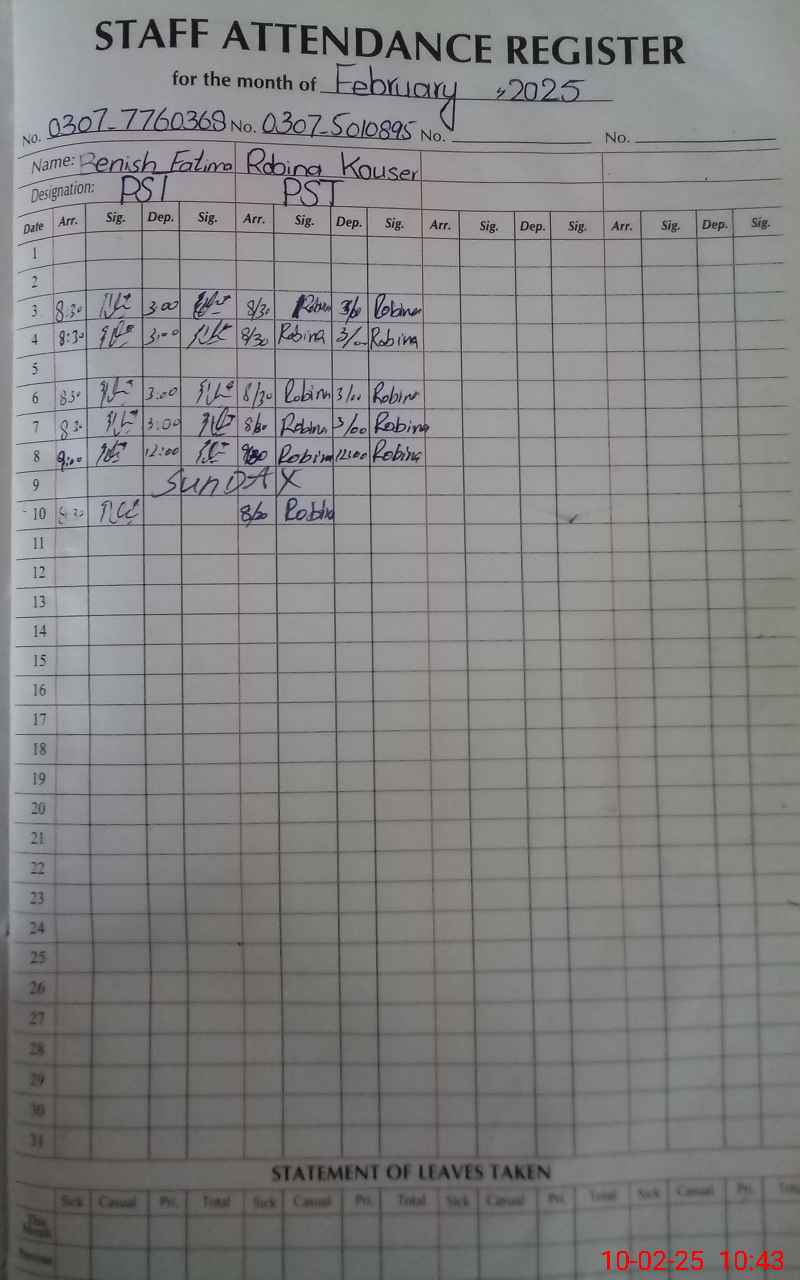 STAFF ATTENDANCE REGISTER
for the month of February , 2025
No. 0307-7760368 No. 0307-5010895 No. No.
Name: Benish Fatima Robina Kouser
Designation: PST PST
Date Arr. Sig. Dep. Sig. Arr. Sig. Dep. Sig. Arr. Sig. Dep. Sig. Arr. Sig. Dep. Sig.
1
2
3 8:30 3:00 8/30 Robina 3/00 Robina
4 8:30 3:00 8/30 Robina 3/00 Robina
5
6 8:30 3:00 8/30 Robina 3/00 Robina
7 8:30 3:00 8/30 Robina 3/00 Robina
8 9:00 12:00 Robina 12:00 Robina
9 SUNDAY
10 8:30 8/30 Robina
11
12
13
14
15
16
17
18
19
20
21
22
23
24
25
26
27
28
29
30
31
STATEMENT OF LEAVES TAKEN
Sick Casual Pri. Total Sick Casual Pri. Total Sick Casual Pri. Total Sick Casual Pri. Total
This Month
10-02-25 10:43